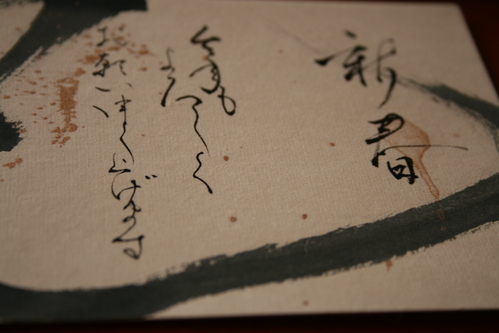 新春
今年も
よろしく
お願い申し上げます